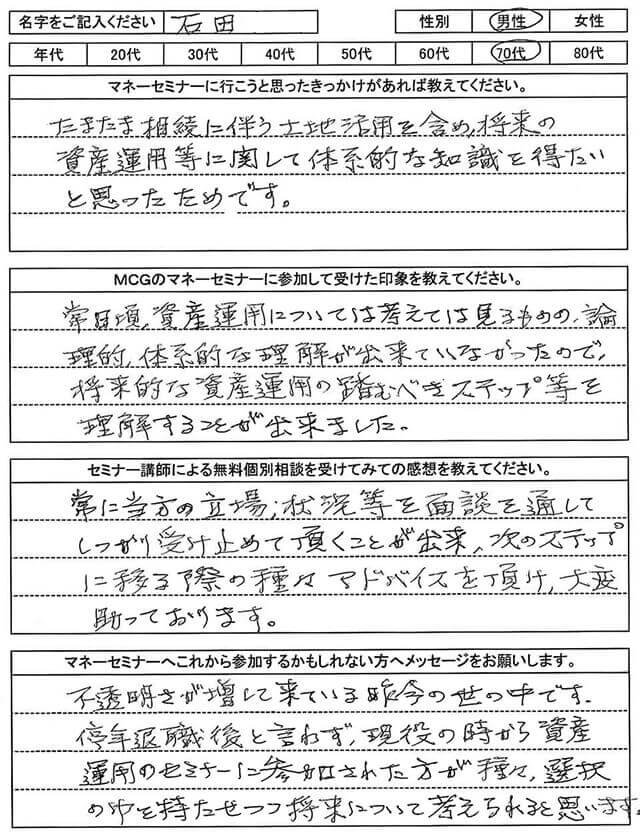 名字をご記入ください 石田 性別 男性 女性
年代 20代 30代 40代 50代 60代 70代 80代
マネーセミナーに行こうと思ったきっかけがあれば教えてください。
たまたま相続に伴う土地活用を含め、将来の
資産運用等に関して体系的な知識を得たい
と思ったためです。
MCGのマネーセミナーに参加して受けた印象を教えてください。
常日頃、資産運用については考えては見るものの、論
理的、体系的な理解が出来ていなかったので、
将来的な資産運用の踏むべきステップ等を
理解することが出来ました。
セミナー講師による無料個別相談を受けてみての感想を教えてください。
常に当方の立場、状況等を面談を通して
しっかり受け止めて頂くことが出来、次のステップ
に移る際の種々アドバイスを頂け、大変
助っております。
マネーセミナーへこれから参加するかもしれない方へメッセージをお願いします。
不透明さが増して来ている昨今の世の中です。
停年退職後と言わず、現役の時から資産
運用のセミナーに参加された方が種々、選択
の巾を持たせつつ将来について考えられると思います。